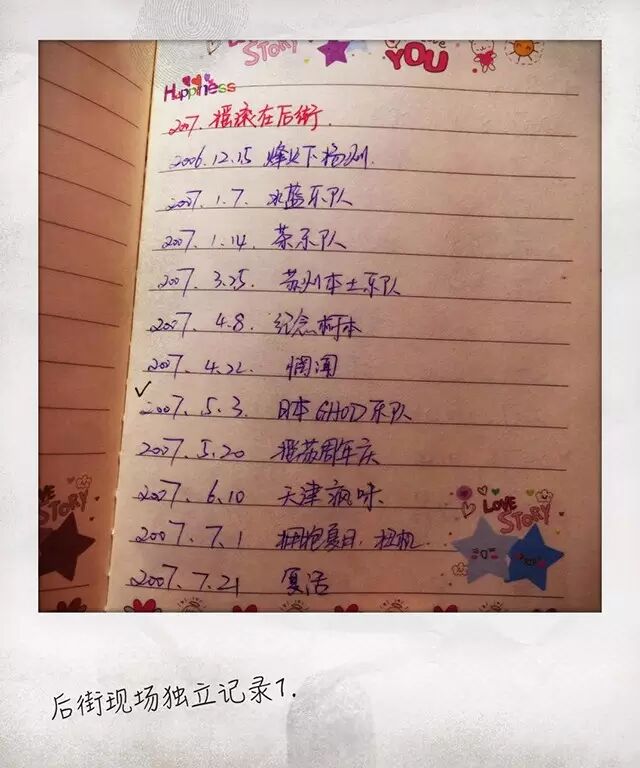 LOVE STORY
YOU
Happiness
2007. 摇滚在后街.
2006.12.15 烽火下扬州.
2007.1.7. 冰蓝乐队
2007.1.14. 茶乐队
2007.3.25. 苏州本土乐队
2007.4.8. 纪念柯本
2007.4.22.
✓
2007.5.3. 日本GHOD乐队
2007.5.20 摇苏周年庆
2007.6.10 天津疯味.
2007.7.1 拥抱夏日.
2007.7.21 复活
LOVE STORY
STORY
后街现场独立记录1.